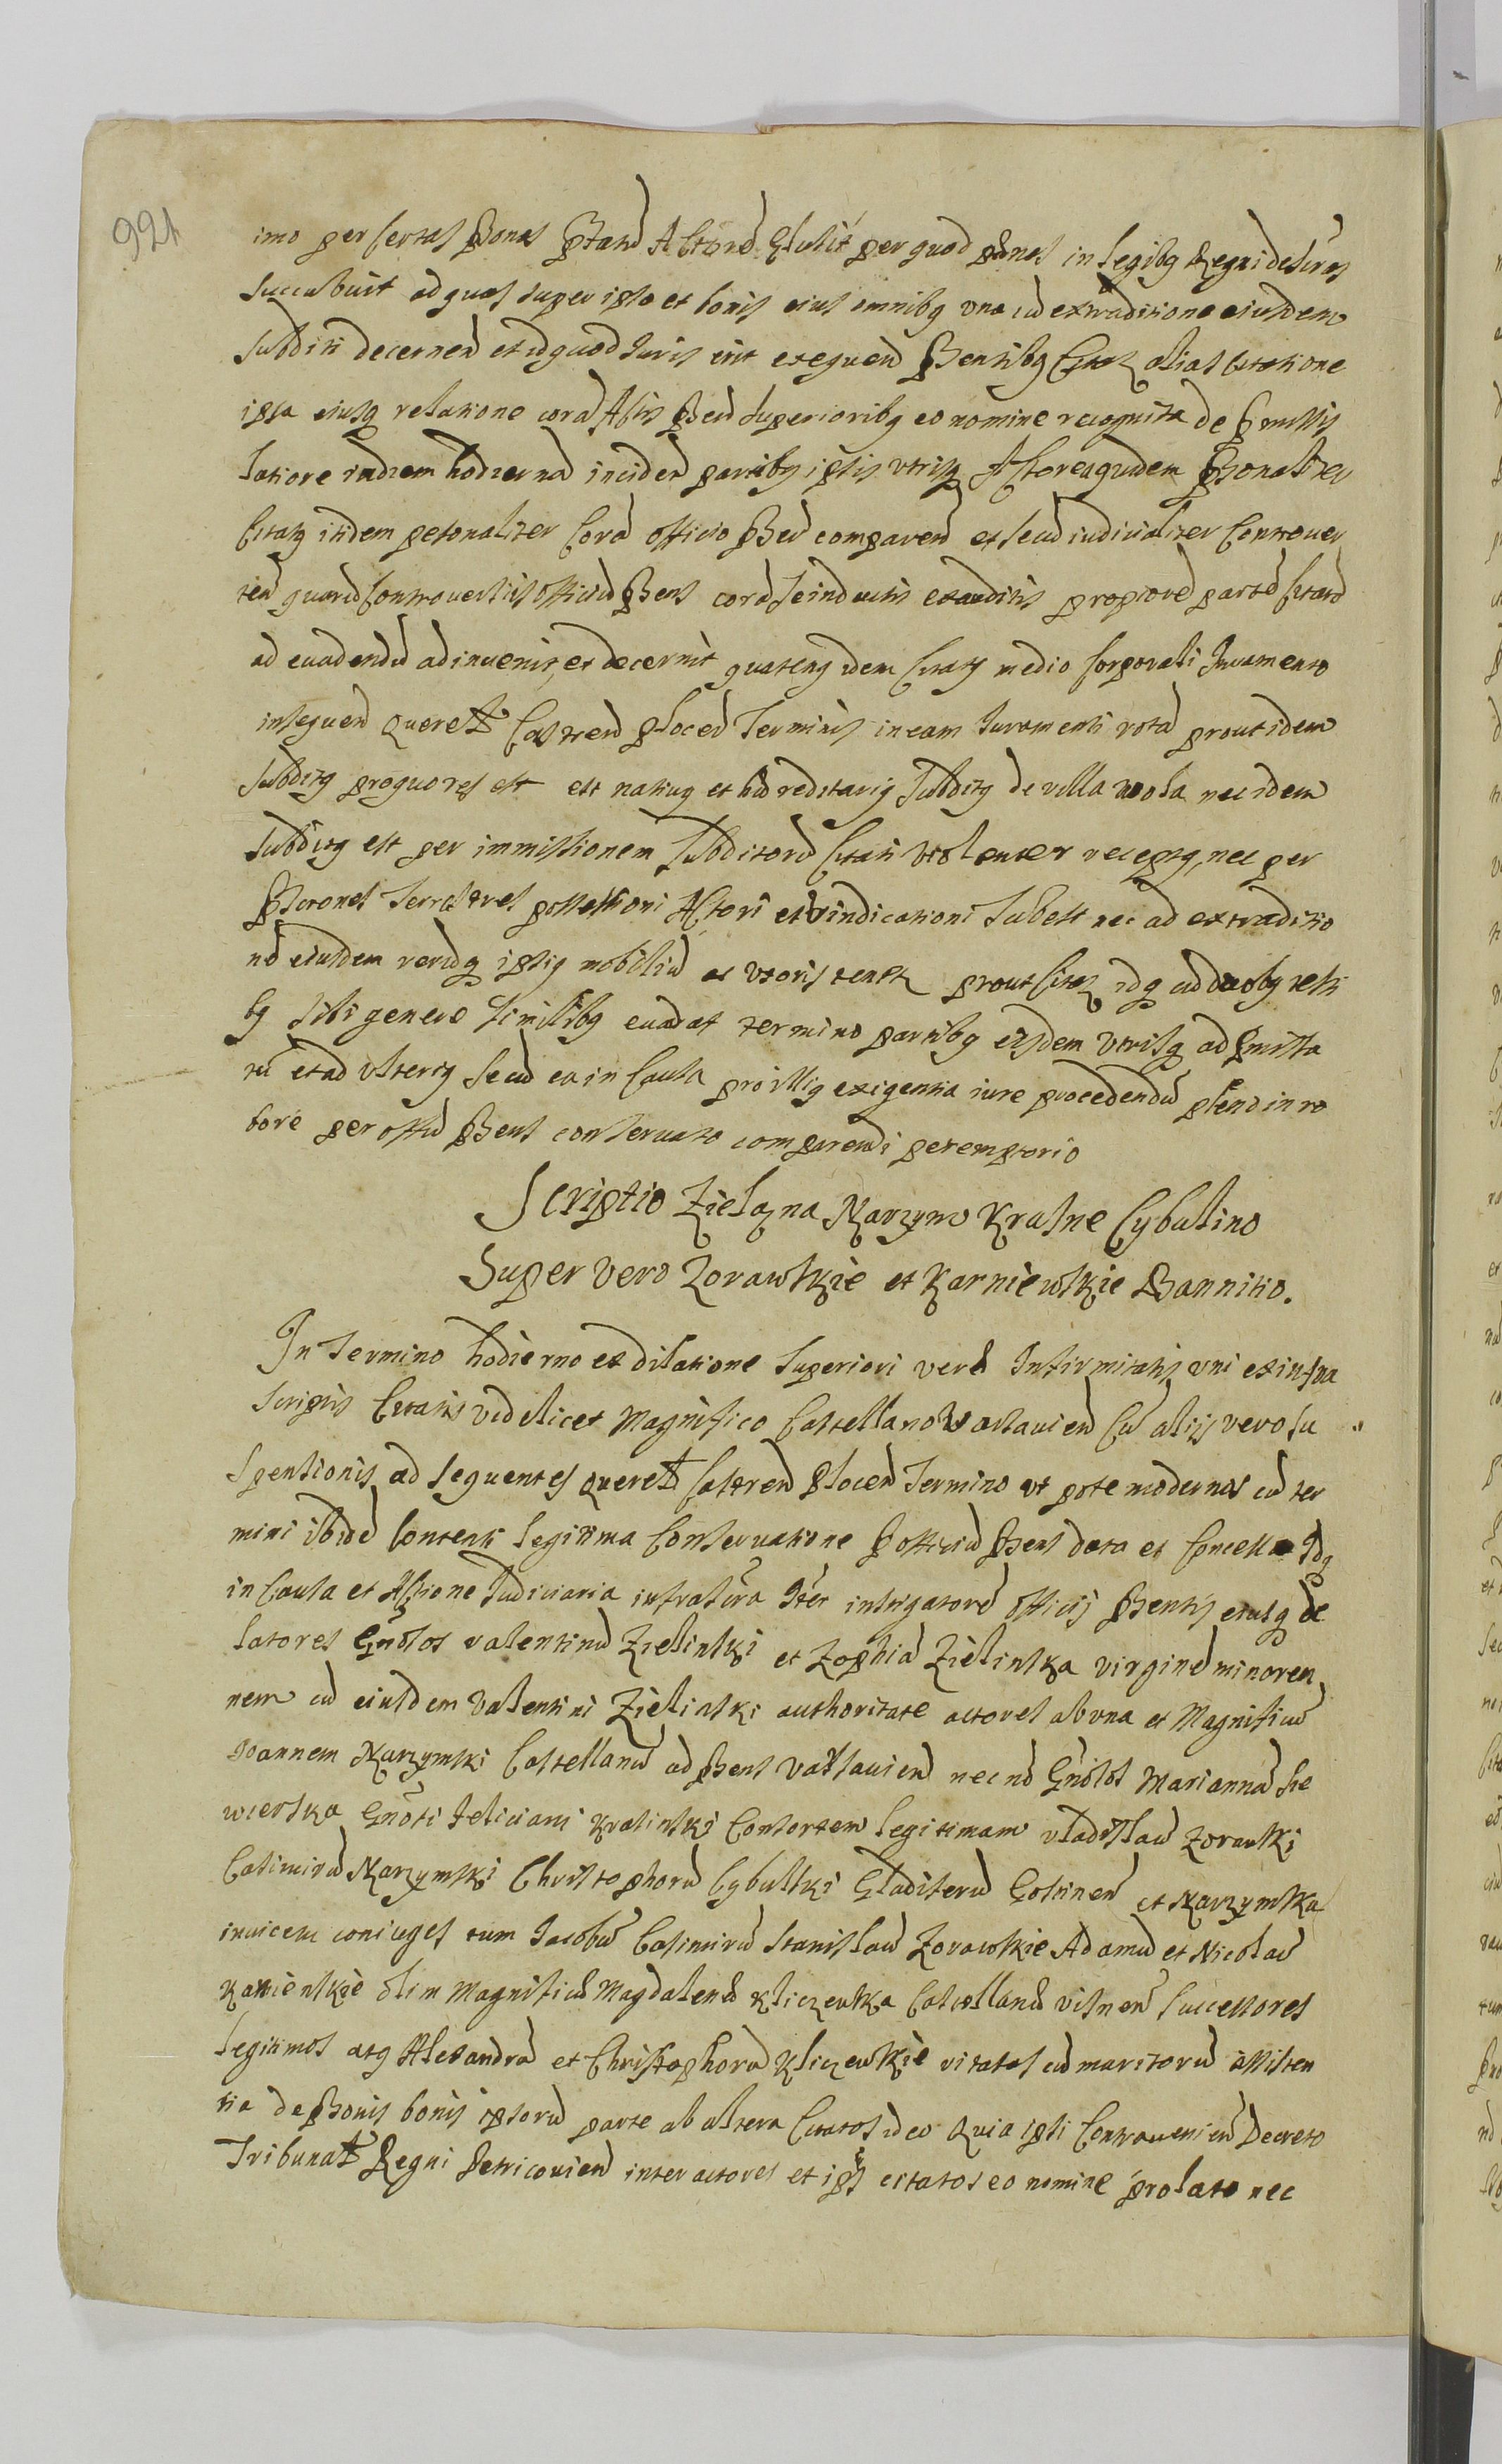 921
imo per certas psonas ptatu Actore extulit per quod penas in legibq Regni descras
succubuit ad quas super ipso et bonis eius omnibq una cu extraditione eiusdem
subditi decernen et id quod iuris erit exequen psentibq Citat alias citatione
ipsa eiusq relatione cora Actis psen superioribq eo nomine recognita de pmissis
latiore in diem hodierna inciden partibq ipsis utrisq Actorea quidem psonalter
Citatq itidem personaliter Cora officio psen comparen et secu iudicialiter Controuer
ten quaru controuersiis officiu psens cora se inductis exauditis propiore parte citatu
ad euadendu adinuenit, et decernit quatenq idem Citatq medio corporali Juramento
in sequen querel Castren Plocen Terminis in eam Juramenti rota prout idem
Subditq pro quo res est est natiuq et hæreditariq Subditq de villa Wola nec idem
Subditq est per immissionem Subditoru Citati violenter receptq, nec per
pscriones terrestres possessioni Actori et vindicationi subest nec ad extraditio
ne eiusdem reruq ipsiq mobiliu et uxoris tenet prout Citat idq cu duobq testi
bq sibi genere similibq euadat termino partibq eisdem utrisq ad pmissa
tu et ad ulteriq secu ea in Causa pro illiq exigentia iure procedendu pleno in ro
bore per offiu psens conseruato comparendi peremptorio
Scriptio Zielazna Narzymo Krasne Cybulino
Super vero Zorawskie et Karniewskie Bannitio.
In Termino hodierno ex dilatione Superiori vera Infirmitatis uni ex infra
scriptis Citatis videlicet Magnifico Castellano Warsauien Cu aliis vero su
spensionis ad sequentes querel Castren Plocen Termino ut pote modernos cu ter
mini ibide contenti legitima Conseruatione p officiu psens data et concessa Idq
in Causa et Actione Judiciaria infrascra Iter instigatore officij psentis eiusq de
latores Gnosos valentinu Zielinski et Zophia Zielinska virgine minoren
nem cu eiusdem Valentini Zielinski authoritate actores ab una et Magnificu
Joannem Narzymski Castellanu ad psens Varsauien nec no Gnosos Marianna Sie
wierska Gnosi Feliciani Krasinski Consortem legitimam Vladislau Zorawski
Casimiru Narzymski Christophoru Cybulski Gladiferu Gostinen et Narzymska
inuicem coniuges tum Jacobu Casimiru Stanislau Zorawskie Adamu et Nicolau
Karnienskie olim Magnificæ Magdalenæ Kliczewska Castellanæ Visnen Successores
legitimos atq Alexandra et Christophoru Kliczewskie citatas cu maritoru assisten
tia de psonis bonis ipsoru parte ab altera Citatos ideo quia ipsi Contrauenien Decreto
Tribunal Regni Petricouien inter actores et ipsos citatos eo nomine prolato nec